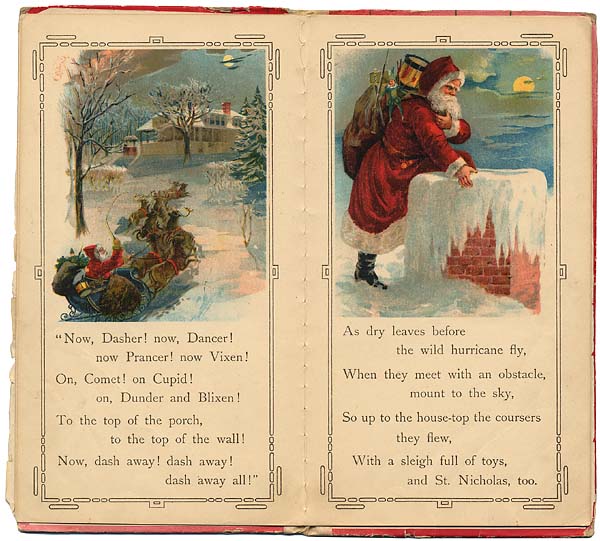 “Now, Dasher! now, Dancer!
now Prancer! now Vixen!
On, Comet! on Cupid!
on, Dunder and Blixen!
To the top of the porch,
to the top of the wall!
Now, dash away! dash away!
dash away all!”
As dry leaves before
the wild hurricane fly,
When they meet with an obstacle,
mount to the sky,
So up to the house-top the coursers
they flew,
With a sleigh full of toys,
and St. Nicholas, too.